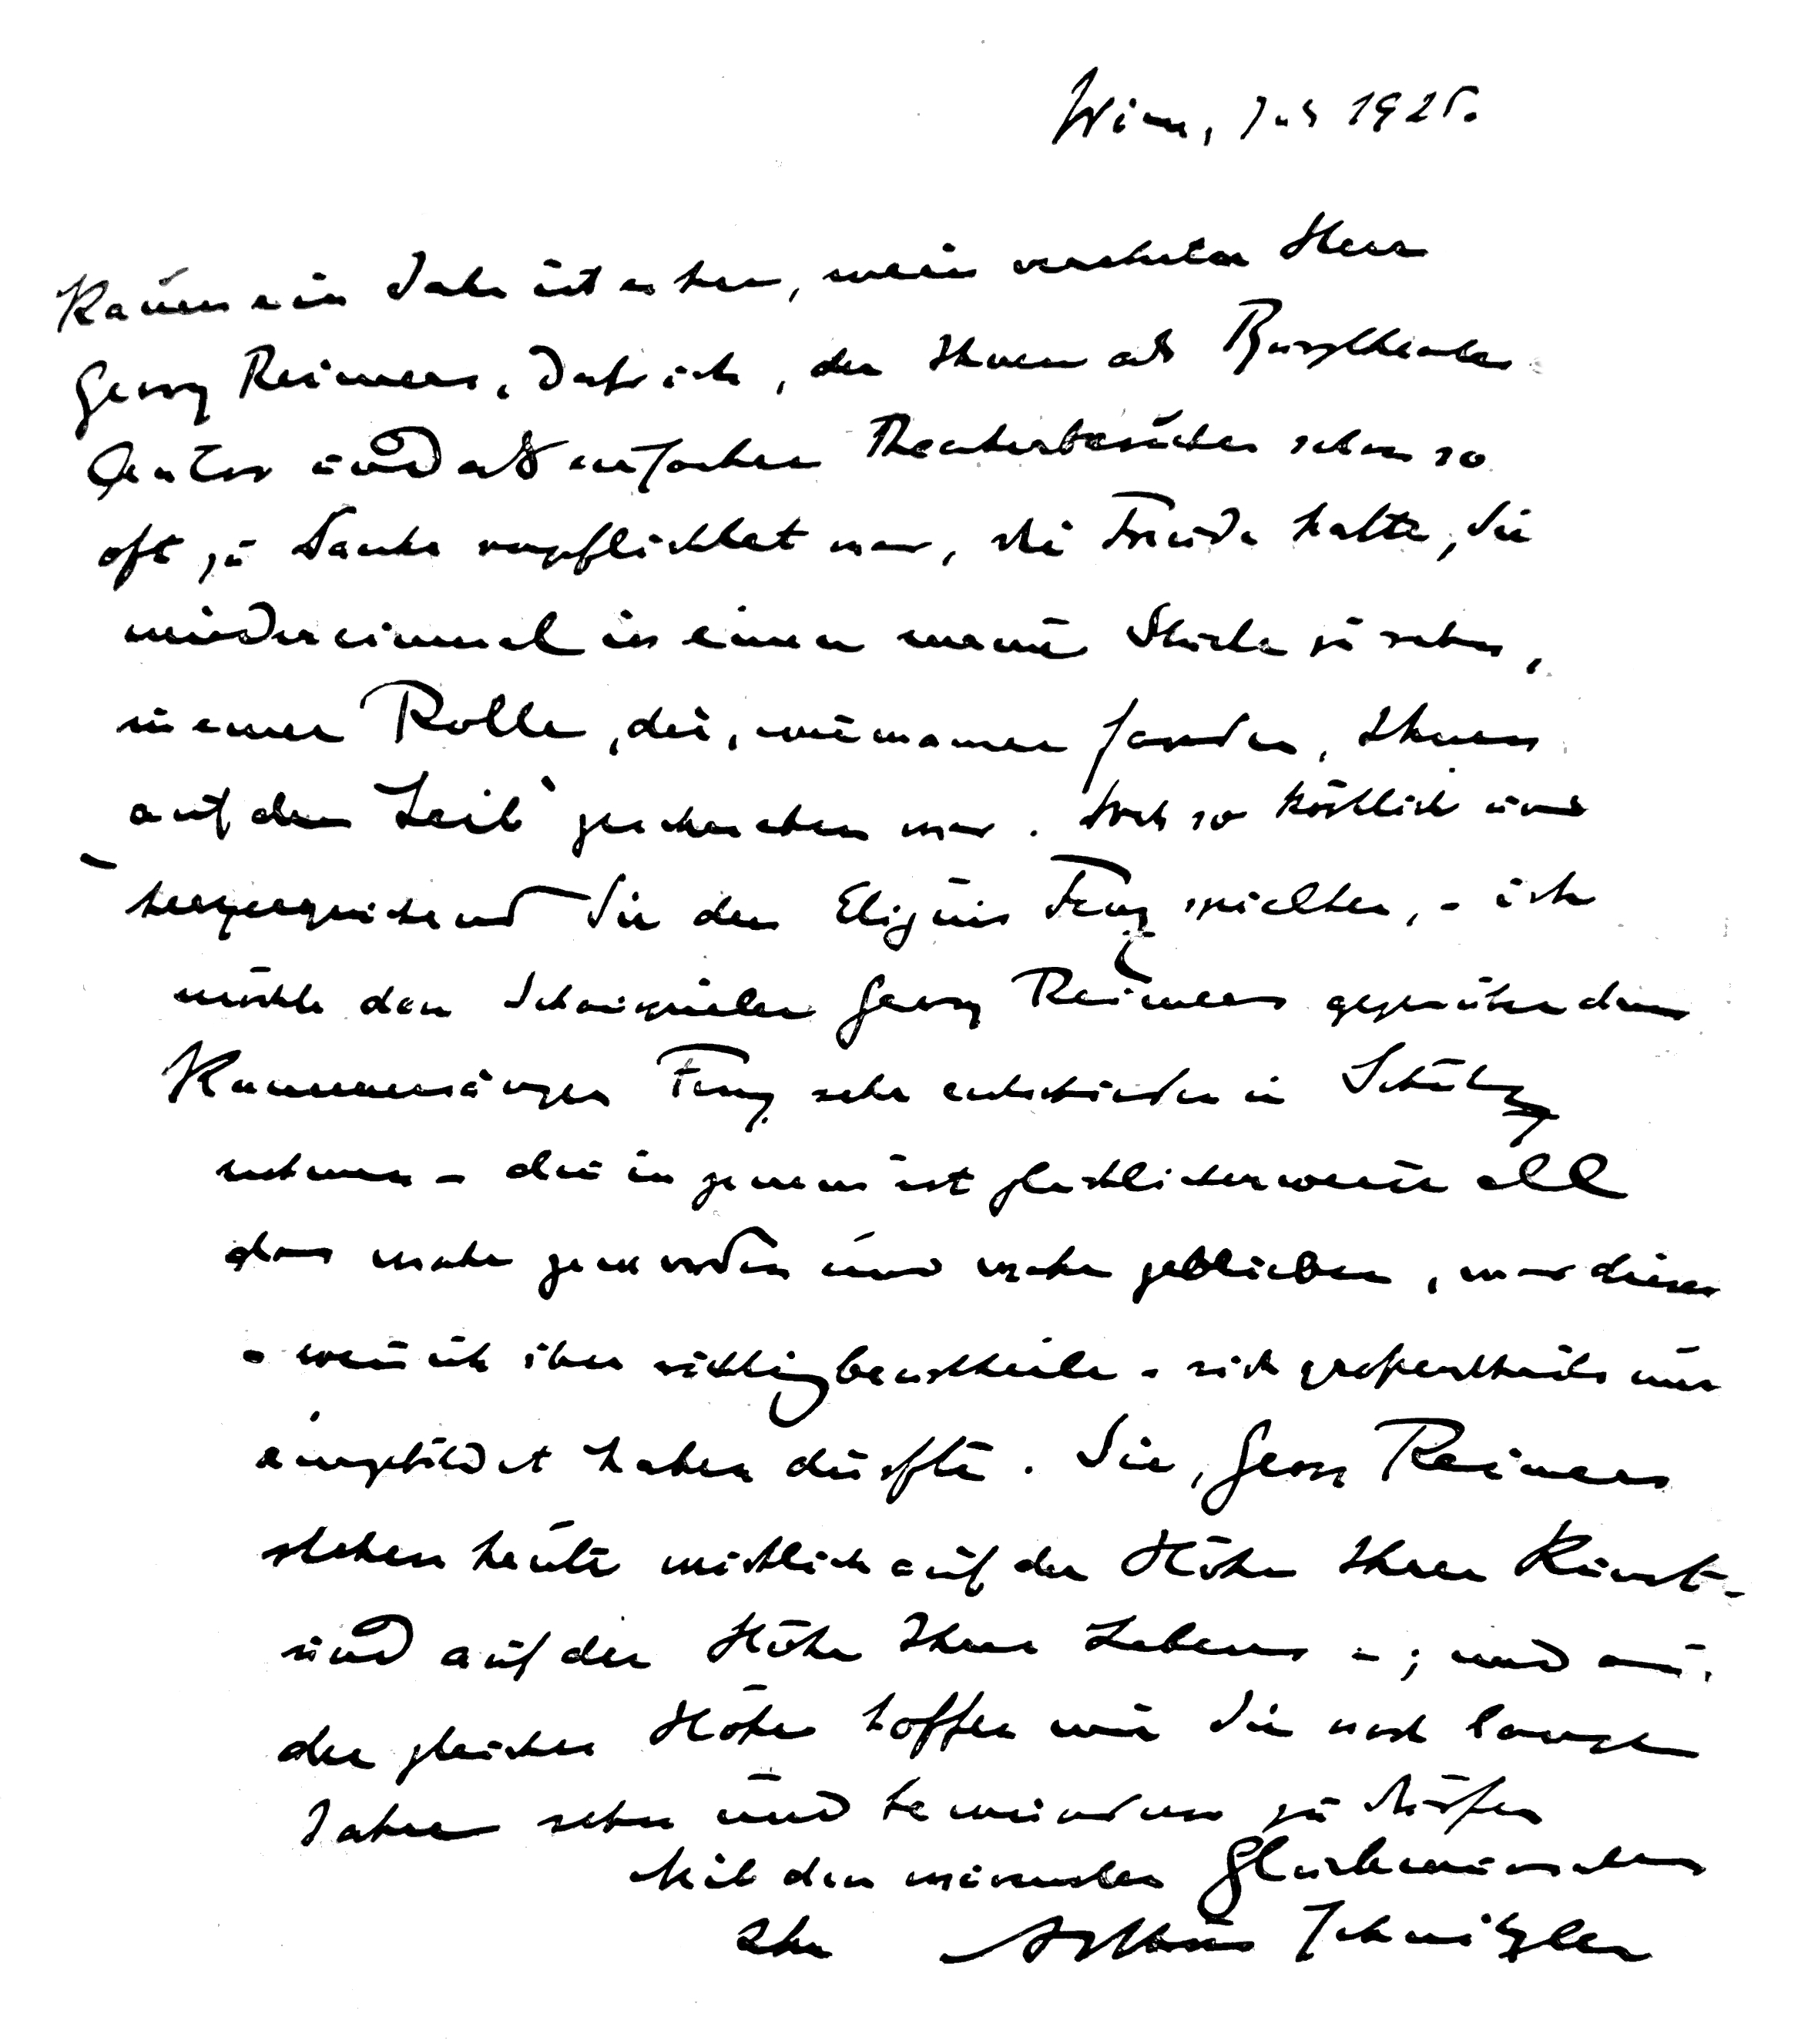 Wien, 1925.
Kaum ein Jahr ist es her, mein verehrter Herr
Georg Reimers, daß ich, der Ihnen als Burgtheater
Autor und als einfacher Theaterbesucher schon so
oft zu Danke verpflichtet war, die Freude hatte, Sie
wieder einmal in einem meiner Stücke zu sehen,
in einer Rolle, die, wie manche fanden, Ihnen
auf den Leib geschrieben war. Doch so köstlich und
herzerquickend Sie den Eligius Fenz spielten, – ich
möchte den Schauspieler Georg Reimers gegenüber dem
Kammersänger Fenz sehr entschieden in Schutz
nehmen – denn in jenem ist glücklicherweise all
das wahr geworden und wahr geblieben, was dieser
– wenn ich ihn richtig beurtheile – sich großentheils nur
eingebildet haben dürfte. Sie, Georg Reimers
stehen heute wirklich auf der Höhe Ihrer Kunst –
und auf der Höhe Ihres Lebens –; und auf
der gleichen Höhe hoffen wir Sie noch lange
Jahre sehn und bewundern zu dürfen
Mit den wärmsten Glückwünschen
Ihr Arthur Schnitzler